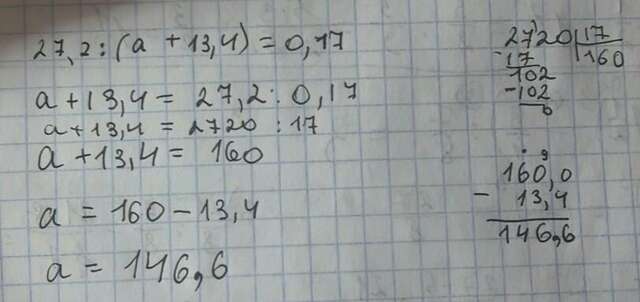 27,2 : (a + 13,4) = 0,17
a + 13,4 = 27,2 : 0,17
a + 13,4 = 2720 : 17
a + 13,4 = 160
a = 160 - 13,4
a = 146,6
2720 | 17
- 17 | 160
102
- 102
0
160,0
- 13,4
146,6